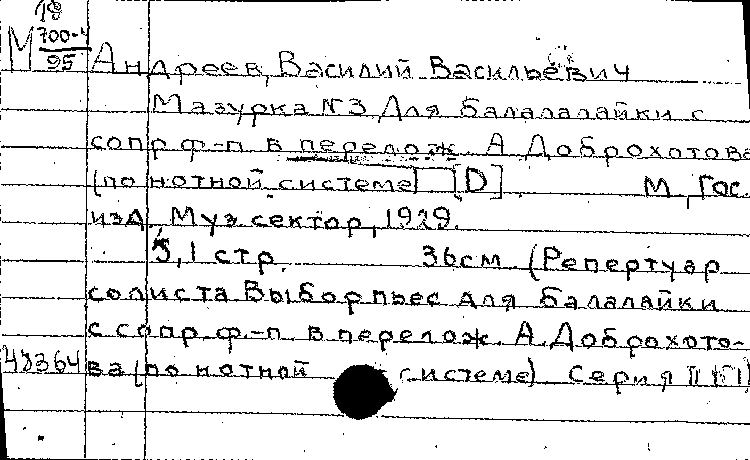 19
М 700-4
95
Андреев, Василий Васильевич
Мазурка N 3 Для балалалайки с
сопр ф-п в перелож. А Доброхотова
(по нотной системе) [D] М, Гос.
изд, Муз сектор, 1929.
5, 1 стр. 36см (Репертуар
солиста Выбор пьес для балалайки
с сопр. ф.-п. в перелож. А. Доброхото-
ва (по нотной системе) Серия II